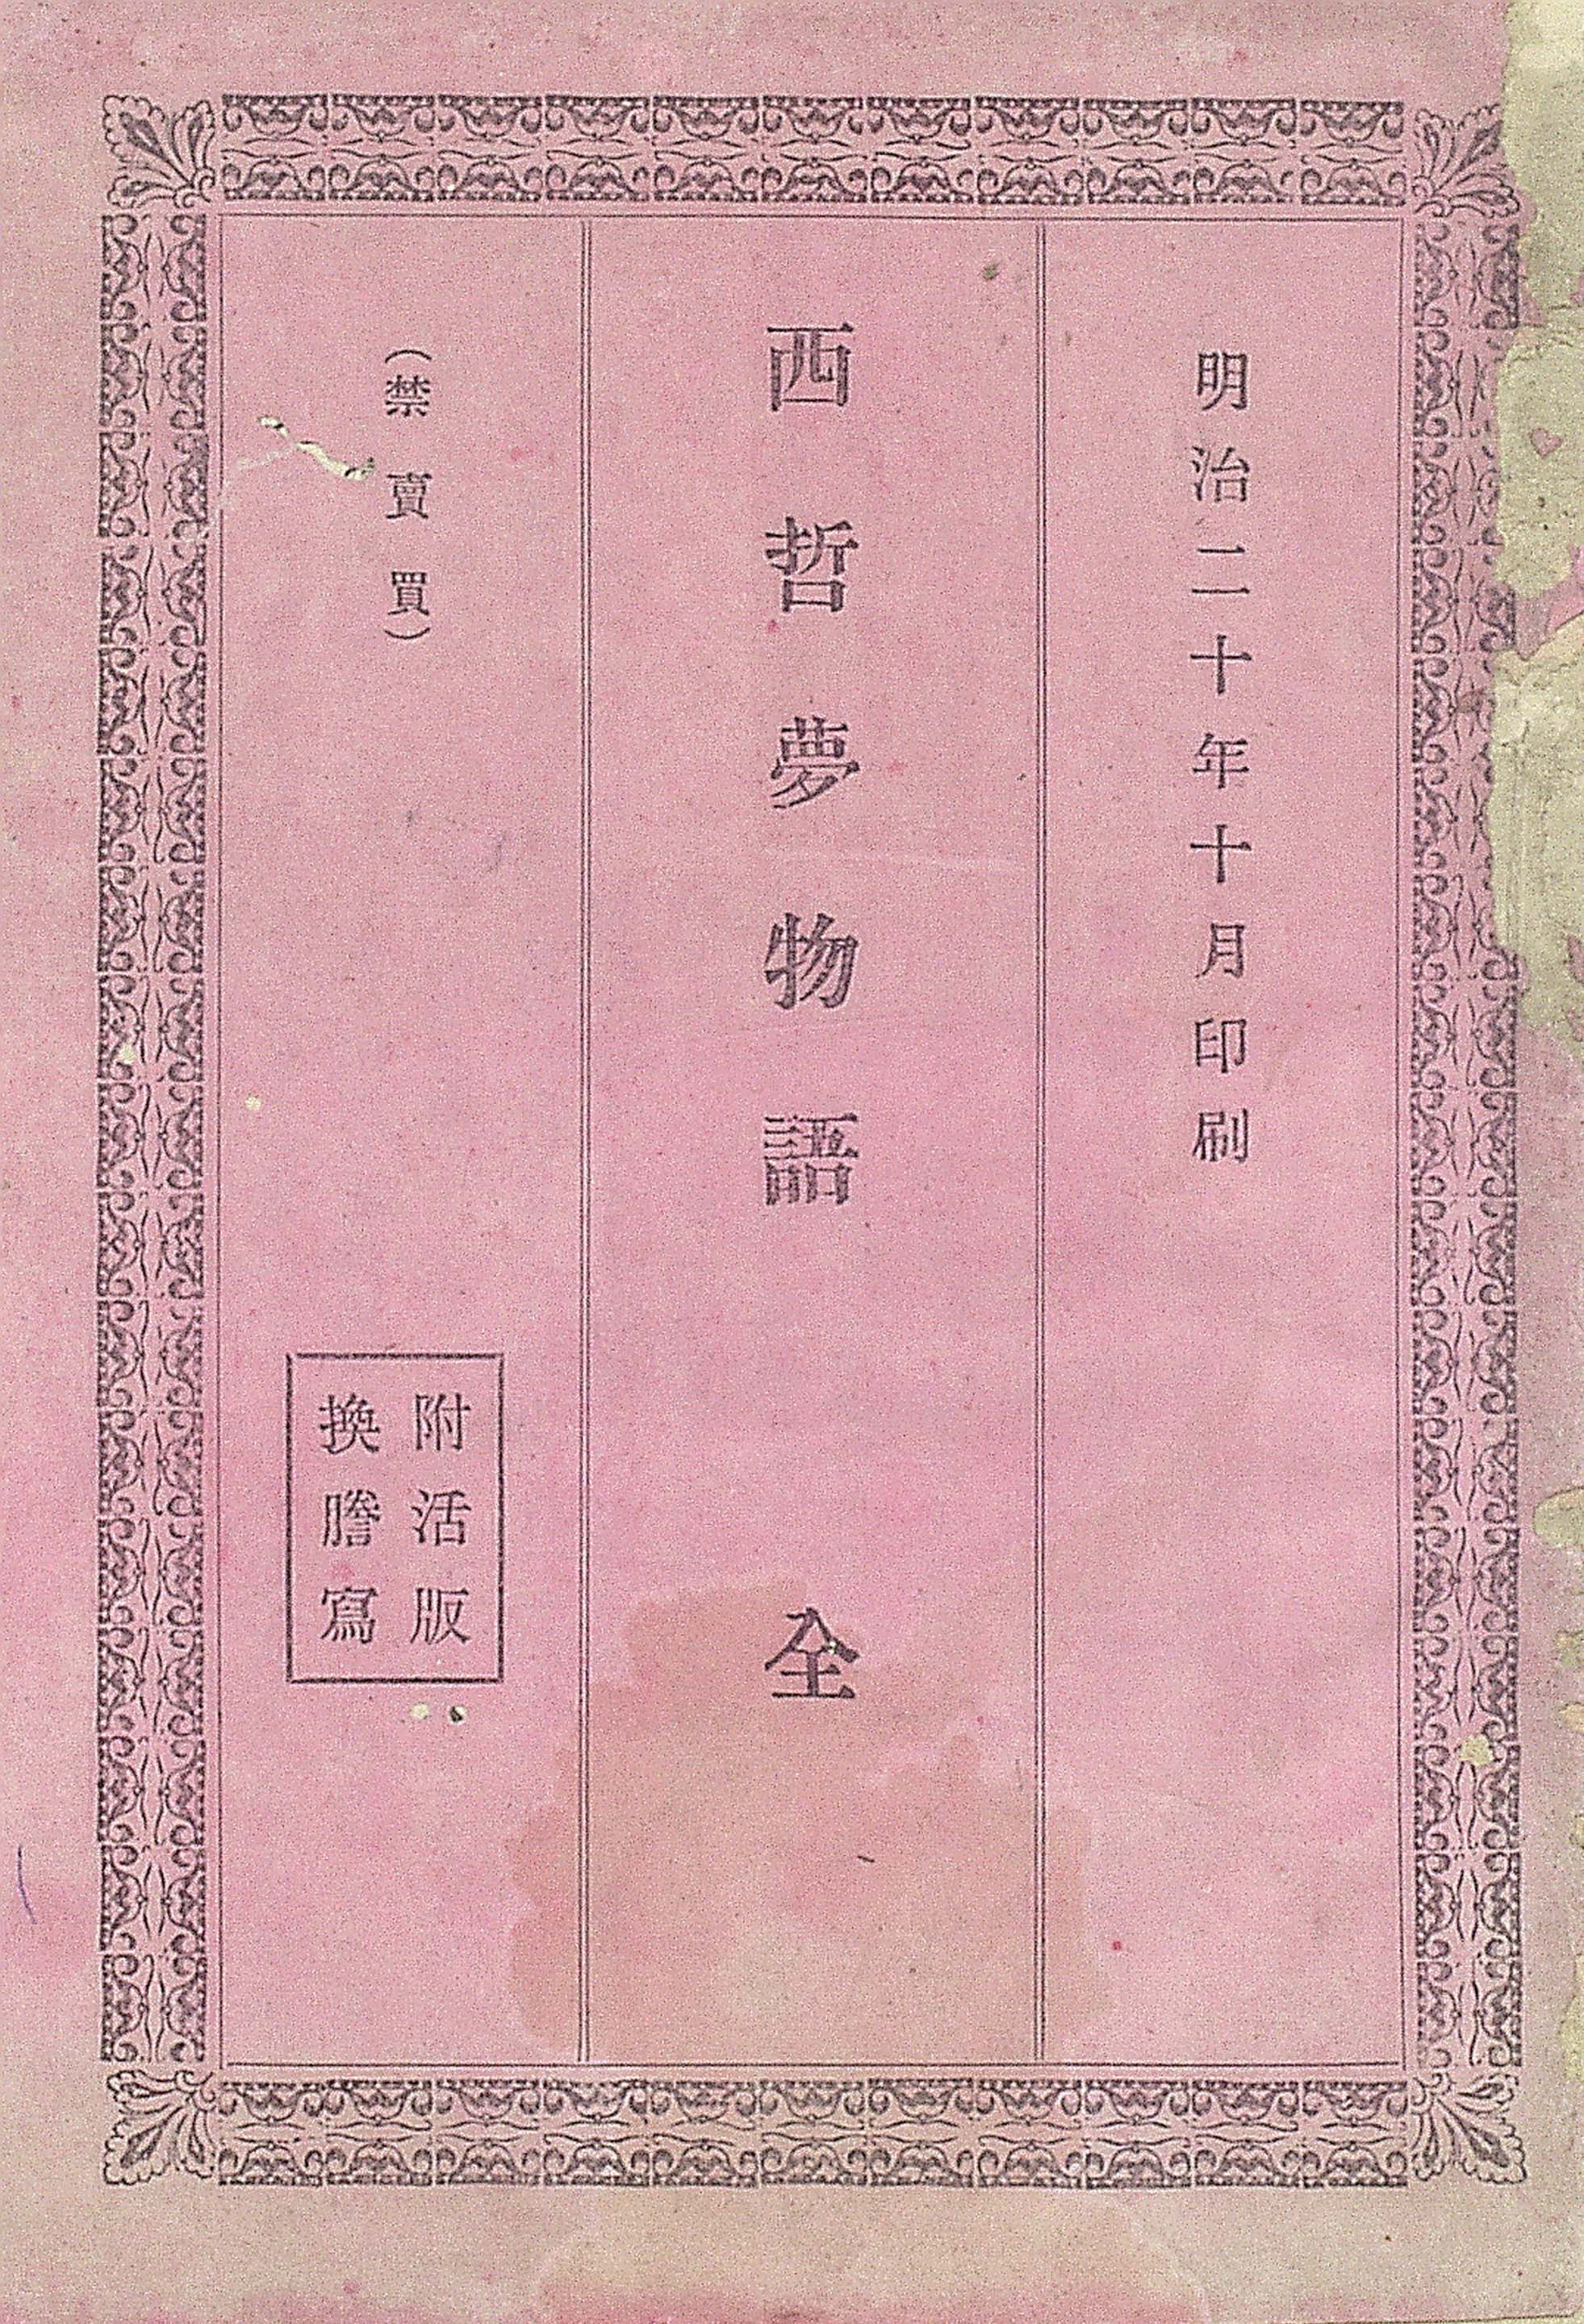 明治二十年十月印刷
西哲夢物語 全
（禁賣買）
附活版
換謄寫